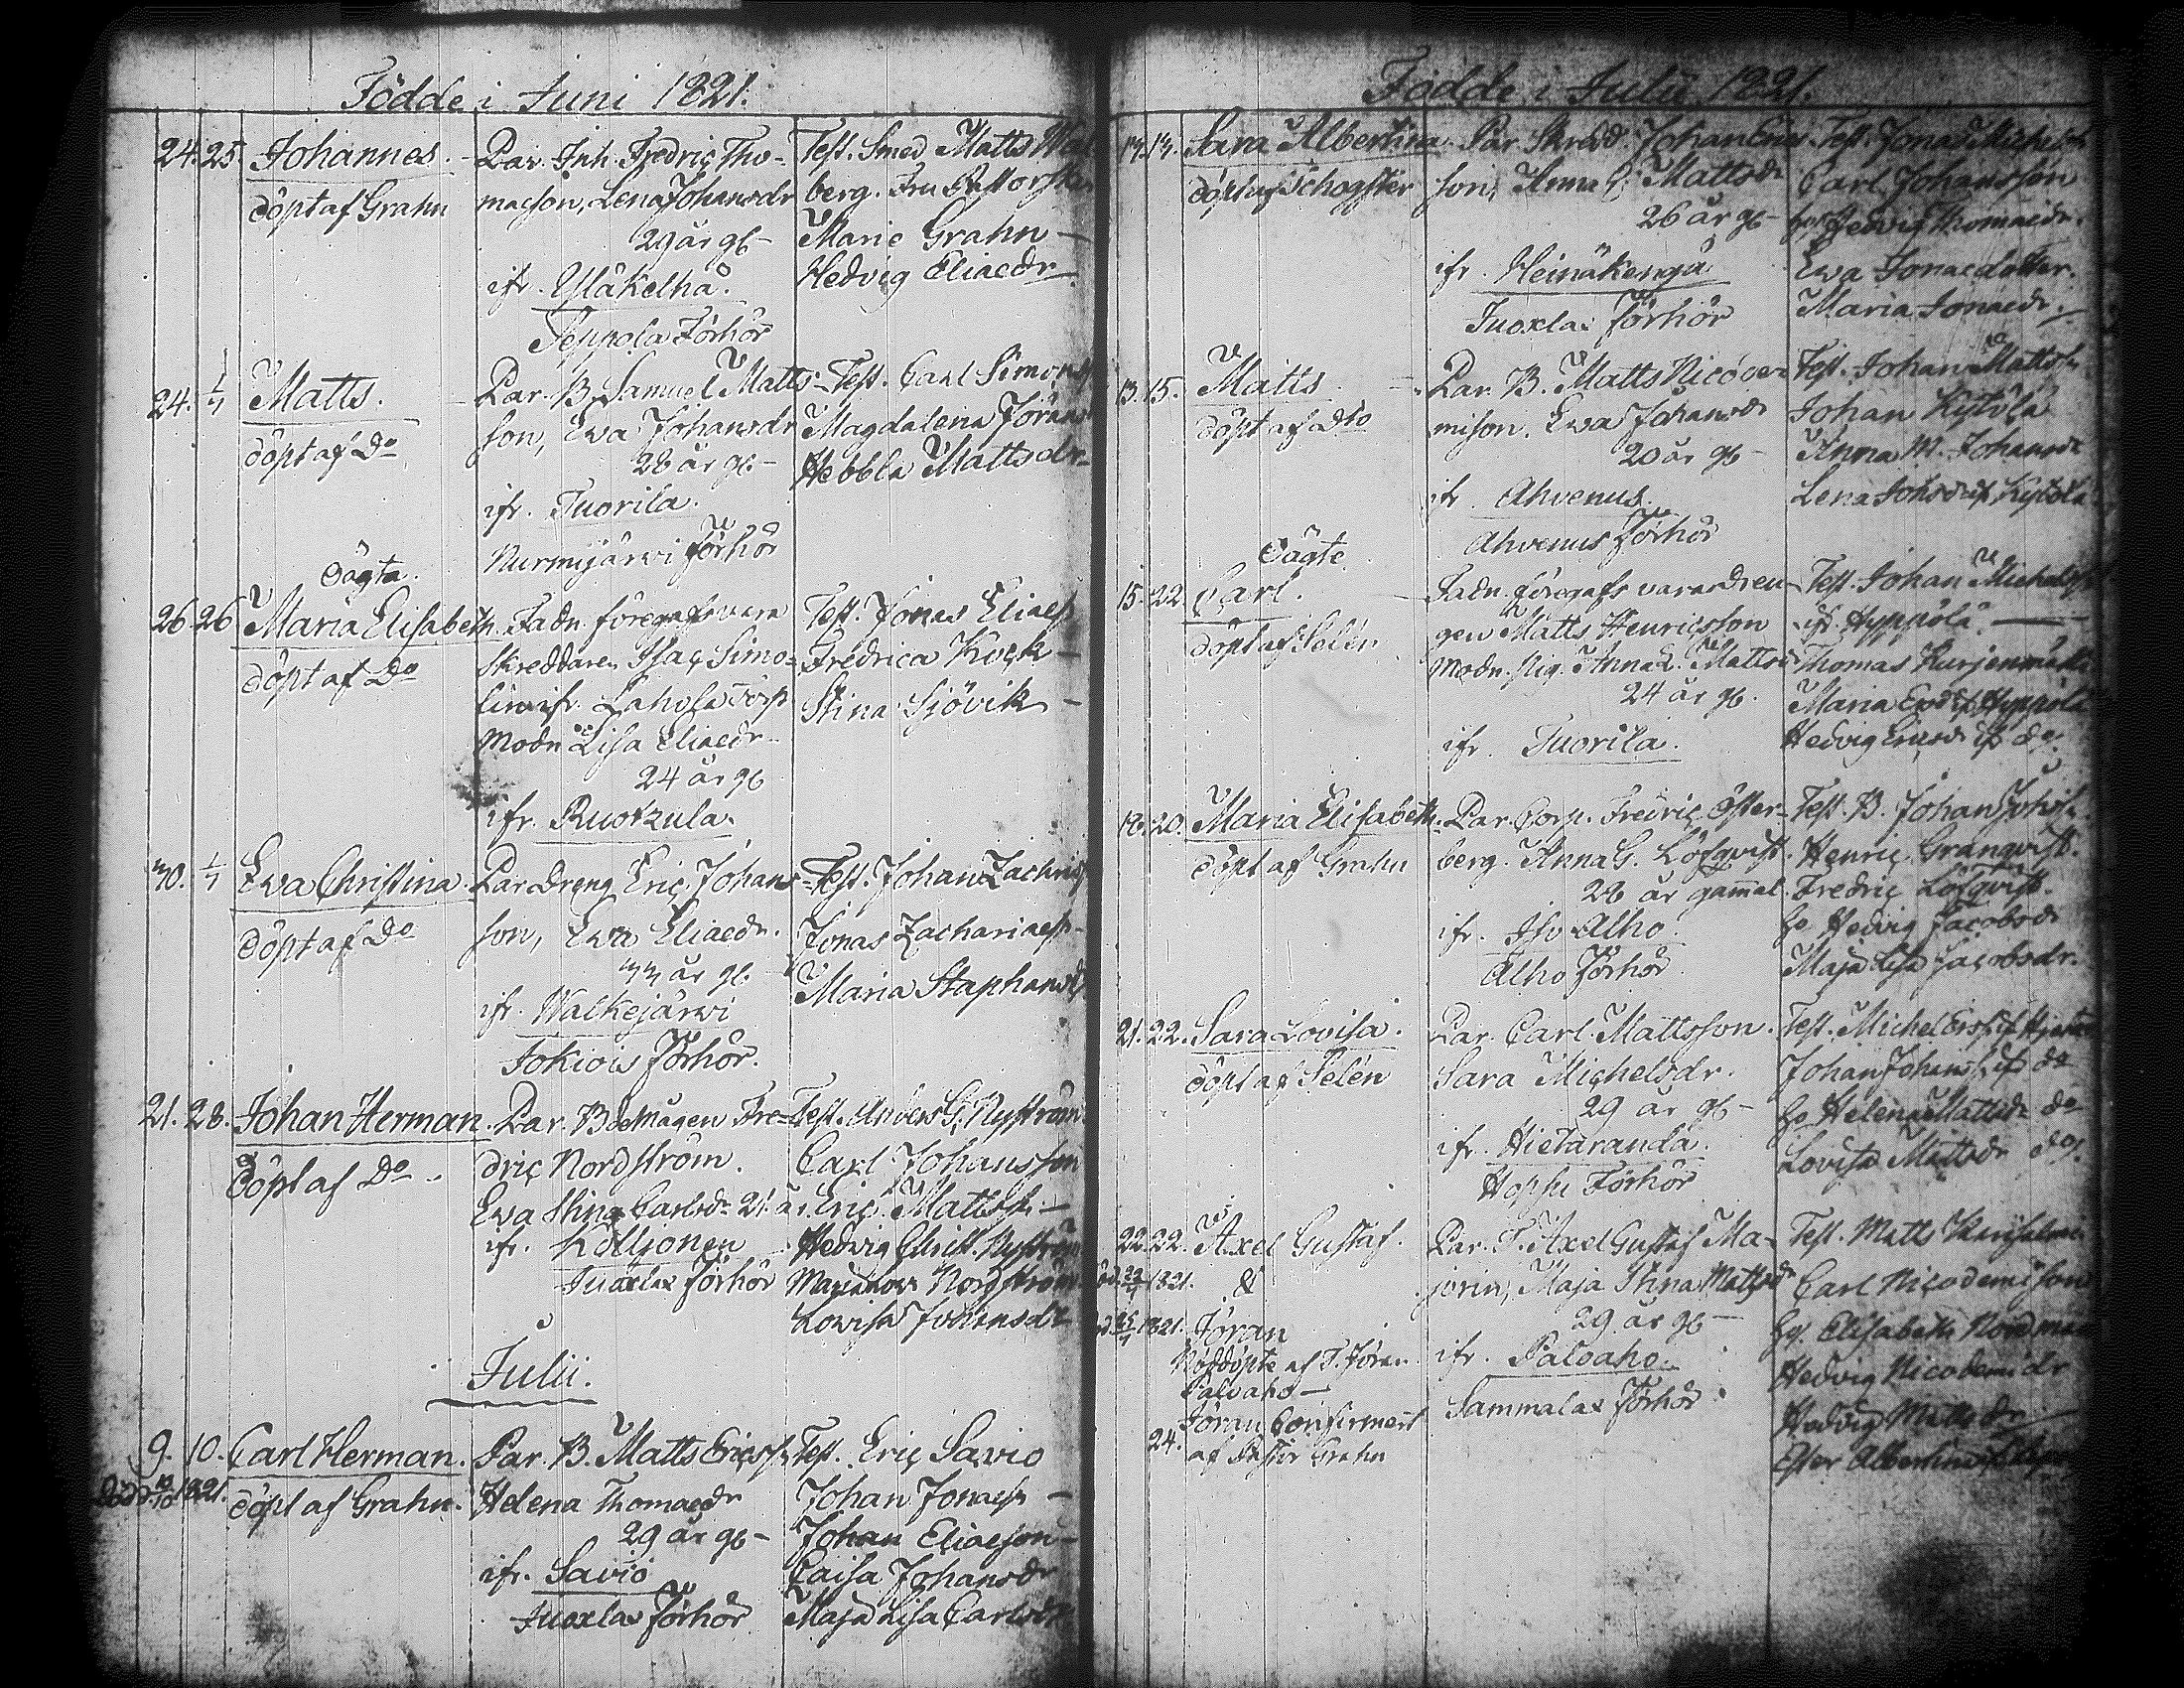 Födde i Juni 1821.
24. 25. Johannes.
döpt af Grahn
Par. Inh. Fredric Tho-
maeson, Lena Johansdr
29 år gl-
ifr. Yläkelhä.
Seppola Förhör
Test. Smed Matts
berg. Fru
Marie Grahn -
Hedvig Eliaedr
24. 1/7 Matts.
döpt af Do
Par. B. Samuel Matts-
son, Ewa Johansdr
28 år gl.-
ifr. Tuorila.
Nurmijärwi Förhör
Test. Carl Simons
Magdalena Jörans
Hebbla Mattsdr-
Oägta.
26. 26 Maria Elisabeth.
döpt af Do
Fadn. föregafs vara
Skreddaren Isac Simo-
lin ifr. Lahola Torp
Modn Lisa Eliaedr
24 år gl
ifr. Ruotzula.
Test. Jonas Eliaess
Fredrica Kock -
Stina Sjövik -
30. 1/7 Ewa Christina.
döpt af Do
Par. Dreng Eric Johans-
son, Ewa Eliaedr.
33 år gl.
ifr. Walkejärwi
Jokiois Förhör.
Test. Johan Zachriss
Jonas Zachariaess.
Maria Staphansd
21. 28. Johan Herman.
döpt af Do.
Par. Bdemågen Fre-
dric Nordström.
Ewa Stina Carlsdr 21 år.
ifr. Kolljonen
Juoxlax Förhör
Test. Anders G. Nyström
Carl Johansson
Eric Mattss. -
Hedvig Christ. Nyström
Nordström
Lowisa Johansdr
Julii.
9. 10. Carl Herman.
Död 1821. döpt af Grahn.
Par. B. Matts Ericss.
Helena Thomaedr
29 år gl-
ifr. Savio
Juoxlax Förhör
Test. Eric Savio
Johan Jonaess -
Johan Eliaeson -
Caisa Johansdr
Maja Lisa Carlsdr
Födde i Julii 1821.
13. 14. Sara Albertina.
döpt af Schogster
Par. Skredd. Johan Erics-
son, Anna C. Mattsdr
26 år gl-
ifr. Heinäkengä
Juoxlax Förhör
Test. Jonas Michelss
Carl Johansson
Hedvig Thomaedr.
Ewa Jonaedotter.
Maria Jonaedr.
13. 15. Matts
döpt af Dto
Par. B. Matts Nicode-
mison. Ewa Johansdr
20 år gl-
ifr. Ahvenus.
Ahvenus Förhör
Test. Johan Mattss
Johan Kytölä
Anna M. Johansdr
Lena Kytölä
Oägte
15. 22 Carl.
döpt af Selén
Fadn. föregafs vara dren-
gen Matts Henricsson
Modn. Pig. Anna L. Mattsd
24 år gl.
ifr. Tuorila.
Test. Johan Michelss
ifr. Hyppölä.
Thomas Kurjenmäki
Maria Hyppölä
Hedvig Ericsdr ifr do
18. 20. Maria Elisabeth.
döpt af Grahn
Par. Corp. Fredric Öster-
berg. Anna G. Löfqvist.
28 år gammal.
ifr. Iso Alho.
Alho Förhör
Test. B. Johan Johss.
Henric Granqvist.
Fredric Löfqvist.
Hedvig Jacobsdr
Maja Lisa Jacobsdr.
21. 22. Sara Lovisa.
döpt af Selén
Par. Carl Mattsson.
Sara Michelsdr.
29 år gl-
ifr. Hietaranda.
Hopsu Förhör
Test. Michel
Johan Johanss. ifr do
Helena Mattsdr do
Lovisa Mattsdr do.
22. 22. Axel Gustaf.
1821. &
1821. Jöran
Nöddöpte af T. Jöran
Paloaho -
Jöran Confirmerit
24. af Pastor Grahn
Par. T. Axel Gustaf Ma-
jorin, Maja Stina Mattsdr
29 år gl-
ifr. Paloaho.
Sammalax Förhör
Test. Matts
Carl Nicodemison
Elisabeth Nordman
Hedvig Nicodemidr
Hedvig Mattsdr
Ester Albertina